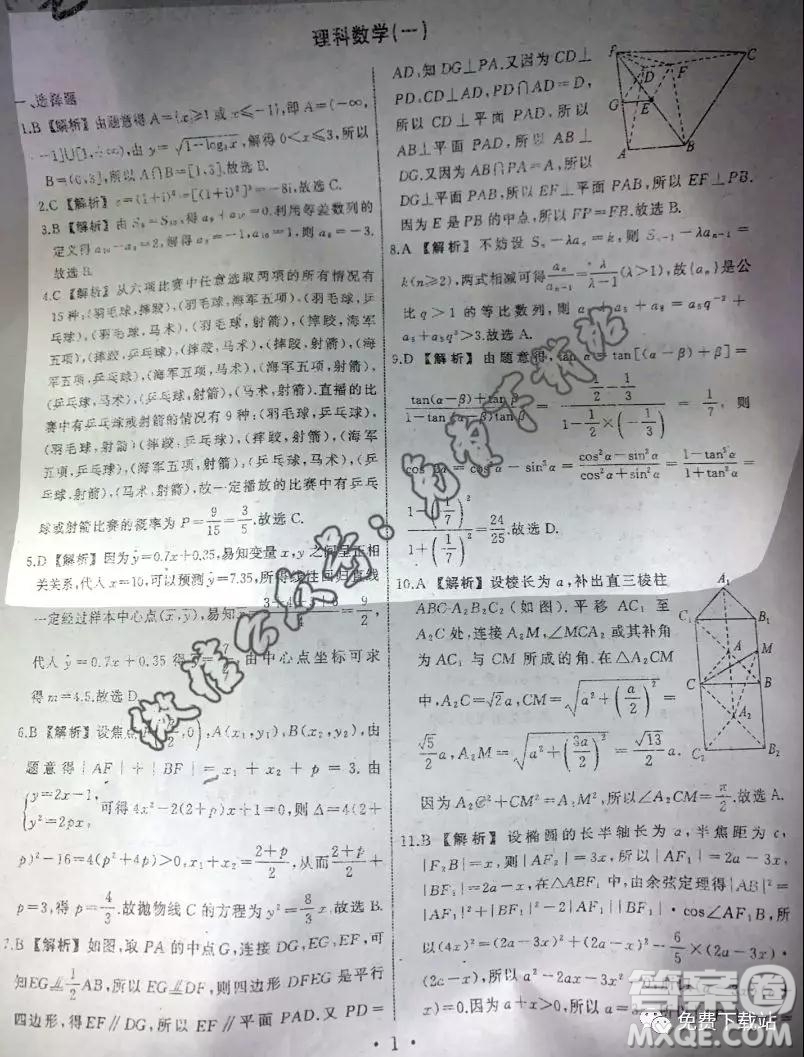 理科数学(一)
一、选择题
1.B【解析】由题意得A={x|x≥1或x≤-1},即A=(-∞,
-1]∪[1,+∞),由y=√(1-log₃x),解得0<x≤3,所以
B=(0,3],所以A∩B=[1,3].故选B.
2.C【解析】z=(1+i)⁶=[(1+i)²]³=-8i,故选C.
3.B【解析】由S₈=S₁₀,得a₉+a₁₀=0.利用等差数列的
定义得a₁₀-a₉=2,解得a₉=-1,a₁₀=1,则a₈=-3.
故选B.
4.C【解析】从六项比赛中任意选取两项的所有情况有
15种:(羽毛球,摔胶),(羽毛球,海军五项),(羽毛球,乒
乓球),(羽毛球,马术),(羽毛球,射箭),(摔胶,海军
五项),(摔胶,乒乓球),(摔胶,马术),(摔胶,射箭),(海
军五项,乒乓球),(海军五项,马术),(海军五项,射箭),
(乒乓球,马术),(乒乓球,射箭),(马术,射箭).直播的比
赛中有乒乓球或射箭的情况有9种:(羽毛球,乒乓球),
(羽毛球,射箭),(摔胶,乒乓球),(摔胶,射箭),(海军
五项,乒乓球),(海军五项,射箭),(乒乓球,马术),(乒
乓球,射箭),(马术,射箭),故一定播放的比赛中有乒乓
球或射箭比赛的概率为P=9/15=3/5.故选C.
5.D【解析】因为ŷ=0.7x+0.35,易知变量x,y之间呈正相
关关系,代入x=10,可以预测y=7.35,所得线性回归直线
一定经过样本中心点(x̄,ȳ),易知 =9/2,
代入ŷ=0.7x+0.35得 由中心点坐标可求
得m=4.5.故选D.
6.B【解析】设焦点 ,A(x₁,y₁),B(x₂,y₂),由
题意得|AF|+|BF|=x₁+x₂+p=3.由
{y=2x-1,
y²=2px, 可得4x²-2(2+p)x+1=0,则Δ=4(2+
p)²-16=4(p²+4p)>0,x₁+x₂=(2+p)/2,从而(2+p)/2+
p=3,得p=4/3.故抛物线C的方程为y²=8/3x.故选B.
7.B【解析】如图,取PA的中点G,连接DG,EG,EF,可
知EG∥1/2AB,所以EG∥DF,则四边形DFEG是平行
四边形,得EF∥DG,所以EF∥平面PAD.又PD=
AD,知DG⊥PA.又因为CD⊥
PD,CD⊥AD,PD∩AD=D,
所以CD⊥平面PAD,所以
AB⊥平面PAD,所以AB⊥
DG.又因为AB∩PA=A,所以
DG⊥平面PAB,所以EF⊥平面PAB,所以EF⊥PB.
因为E是PB的中点,所以FP=FB.故选B.
P C D F G E A B
8.A【解析】不妨设Sₙ-λaₙ=k,则Sₙ₋₁-λaₙ₋₁=
k(n≥2),两式相减可得aₙ/aₙ₋₁=λ/(λ-1)(λ>1),故{aₙ}是公
比q>1的等比数列,则 +a₅+a₈=a₅q⁻²+
a₅+a₅q³>3.故选A.
9.D【解析】由题意得,tan α=tan[(α-β)+β]=
(tan(α-β)+tan β)/(1-tan(α-β)tan β)=(1/2-1/3)/(1-1/2×(-1/3))=1/7,则
cos 2α=cos²α-sin²α=(cos²α-sin²α)/(cos²α+sin²α)=(1-tan²α)/(1+tan²α)=
(1-(1/7)²)/(1+(1/7)²)=24/25.故选D.
10.A【解析】设棱长为a,补出直三棱柱
ABC-A₂B₂C₂(如图).平移AC₁至
A₂C处,连接A₂M,∠MCA₂或其补角
为AC₁与CM所成的角.在△A₂CM
中,A₂C=√2a,CM=√(a²+(a/2)²)=
√5/2a,A₂M=√(a²+(3a/2)²)=√13/2a.
因为A₂C²+CM²=A₂M²,所以∠A₂CM=π/2.故选A.
A₁ C₁ B₁ M A C B A₂ C₂ B₂
11.B【解析】设椭圆的长半轴长为a,半焦距为c,
|F₂B|=x,则|AF₂|=3x,所以|AF₁|=2a-3x,
|BF₁|=2a-x,在△ABF₁中,由余弦定理得|AB|²=
|AF₁|²+|BF₁|²-2|AF₁||BF₁|·cos∠AF₁B,所
以(4x)²=(2a-3x)²+(2a-x)²-6/5×(2a-3x)·
(2a-x),所以a²-2ax-3x²
x)=0.因为a+x>0,所以
· 1 ·
答案圈
免费下载站